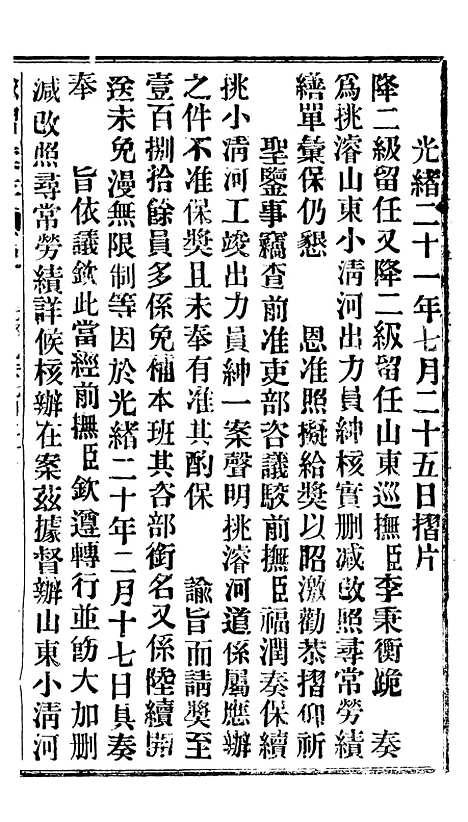 光緒二十一年七月二十五日摺片
降二級留任又降二級留任山東巡撫臣李秉衡跪　奏
爲挑濬山東小清河出力員紳核實删減改照尋常勞績
繕單彙保仍懇　恩准照擬給獎以昭激勸恭摺仰祈
聖鑒事竊查前准吏部咨議駁前撫臣福潤奏保續
挑小清河工竣出力員紳一案聲明挑濬河道係屬應辦
之件不准保獎且未奉有准其酌保　諭旨而請獎至
壹百捌拾餘員多係免補本班其咨部銜名又係陸續開
送未免漫無限制等因於光緒二十年二月十七日具奏
奉　旨依議欽此當經前撫臣欽遵轉行並飭大加删
減改照尋常勞績詳候核辦在案茲據督辦山東小清河